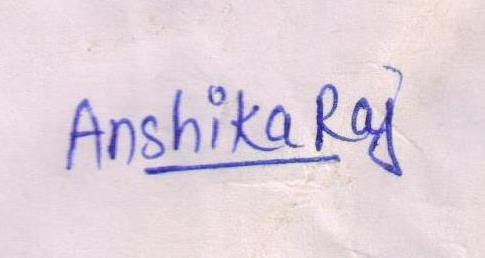 Anshika Raj